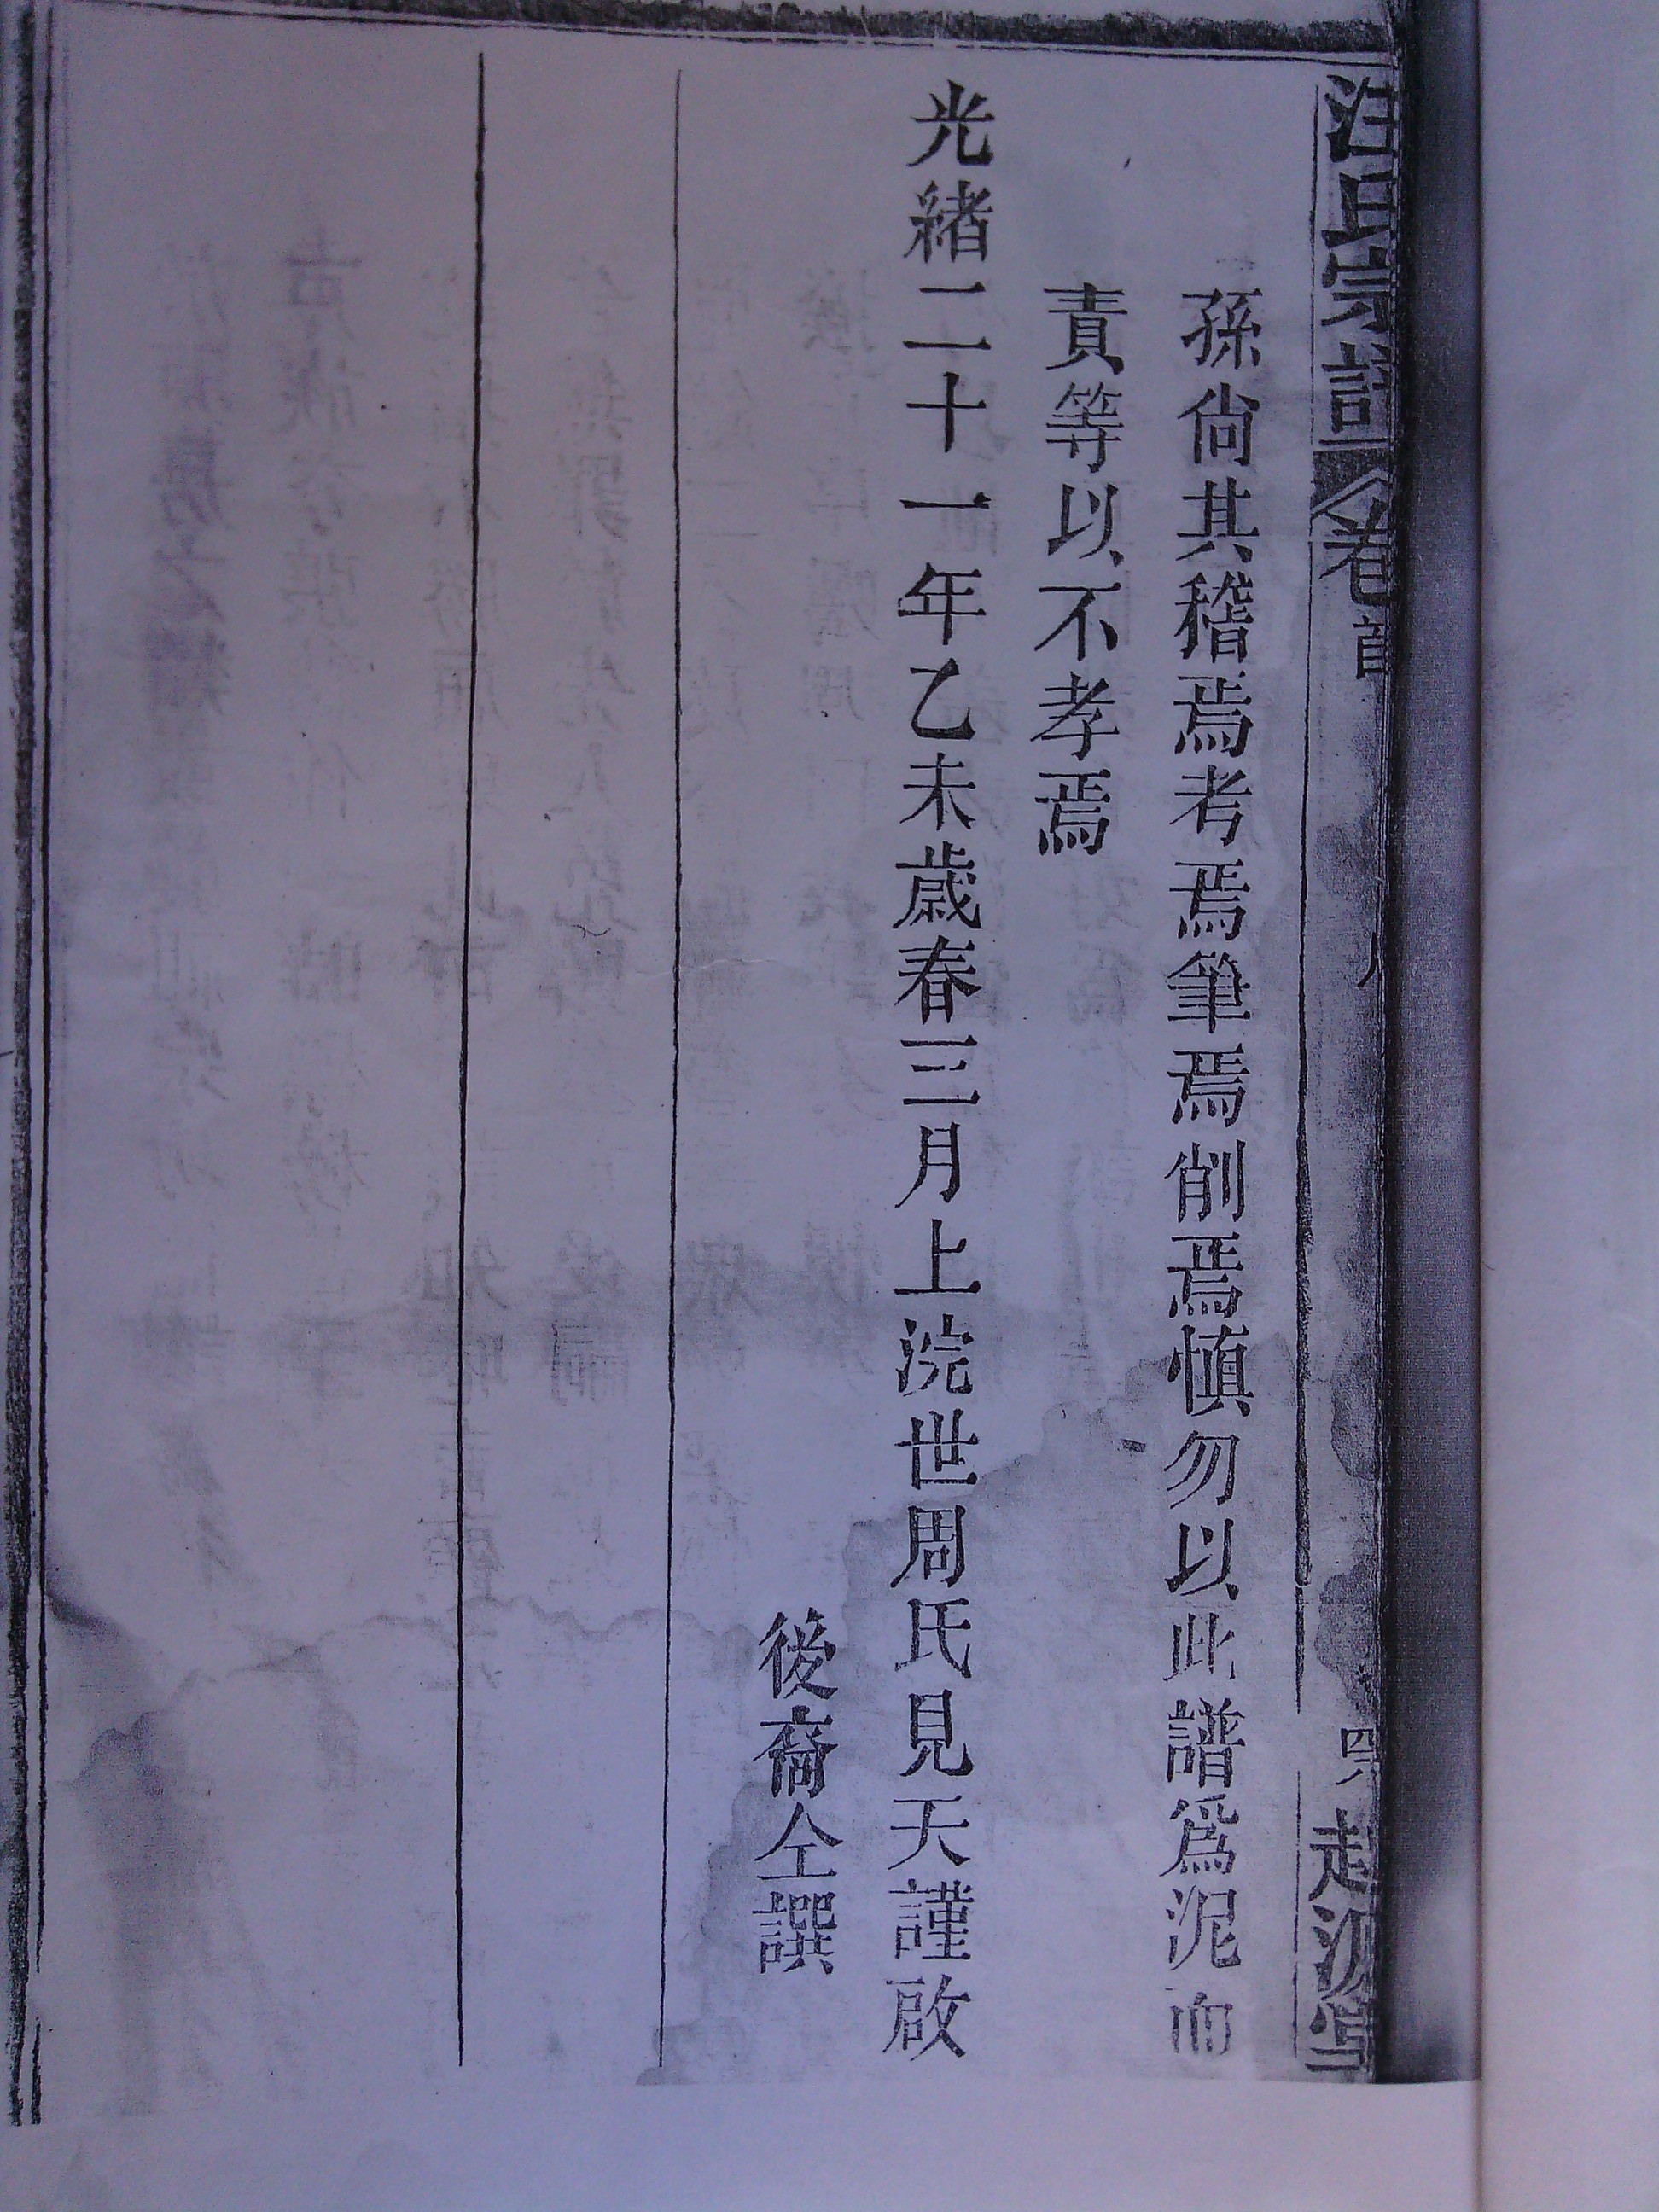 汪氏宗譜 卷首 四 越派堂
孫尙其稽焉考焉筆焉削焉愼勿以此譜爲泥而
責等以不孝焉
光緒二十一年乙未歲春三月上浣世周氏見天謹啟
後裔仝譔